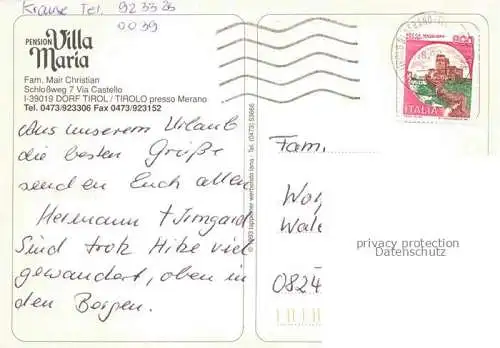 Krause Tel. 923325
0039
PENSION Villa
Maria
Fam. Mair Christian
Schloßweg 7 Via Castello
I-39019 DORF TIROL / TIROLO presso Merano
Tel. 0473/923306 Fax 0473/923152
Aus unserem Urlaub
die besten Grüße
senden Euch allen
Hermann + Irmgard
Sind trotz Hitze viel
gewandert, oben in
den Bergen.
Tel. (0473)
ITALIA
Fam.
0824
privacy protection
Datenschutz